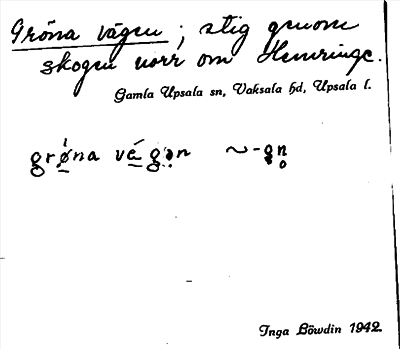 Gröna vägen ; stig genom
skogen norr om Hemringe.
Gamla Upsala sn, Vaksala hd, Upsala l.
grǿ̱na vé̱gən ~-gn̥
Inga Böwdin 1942.